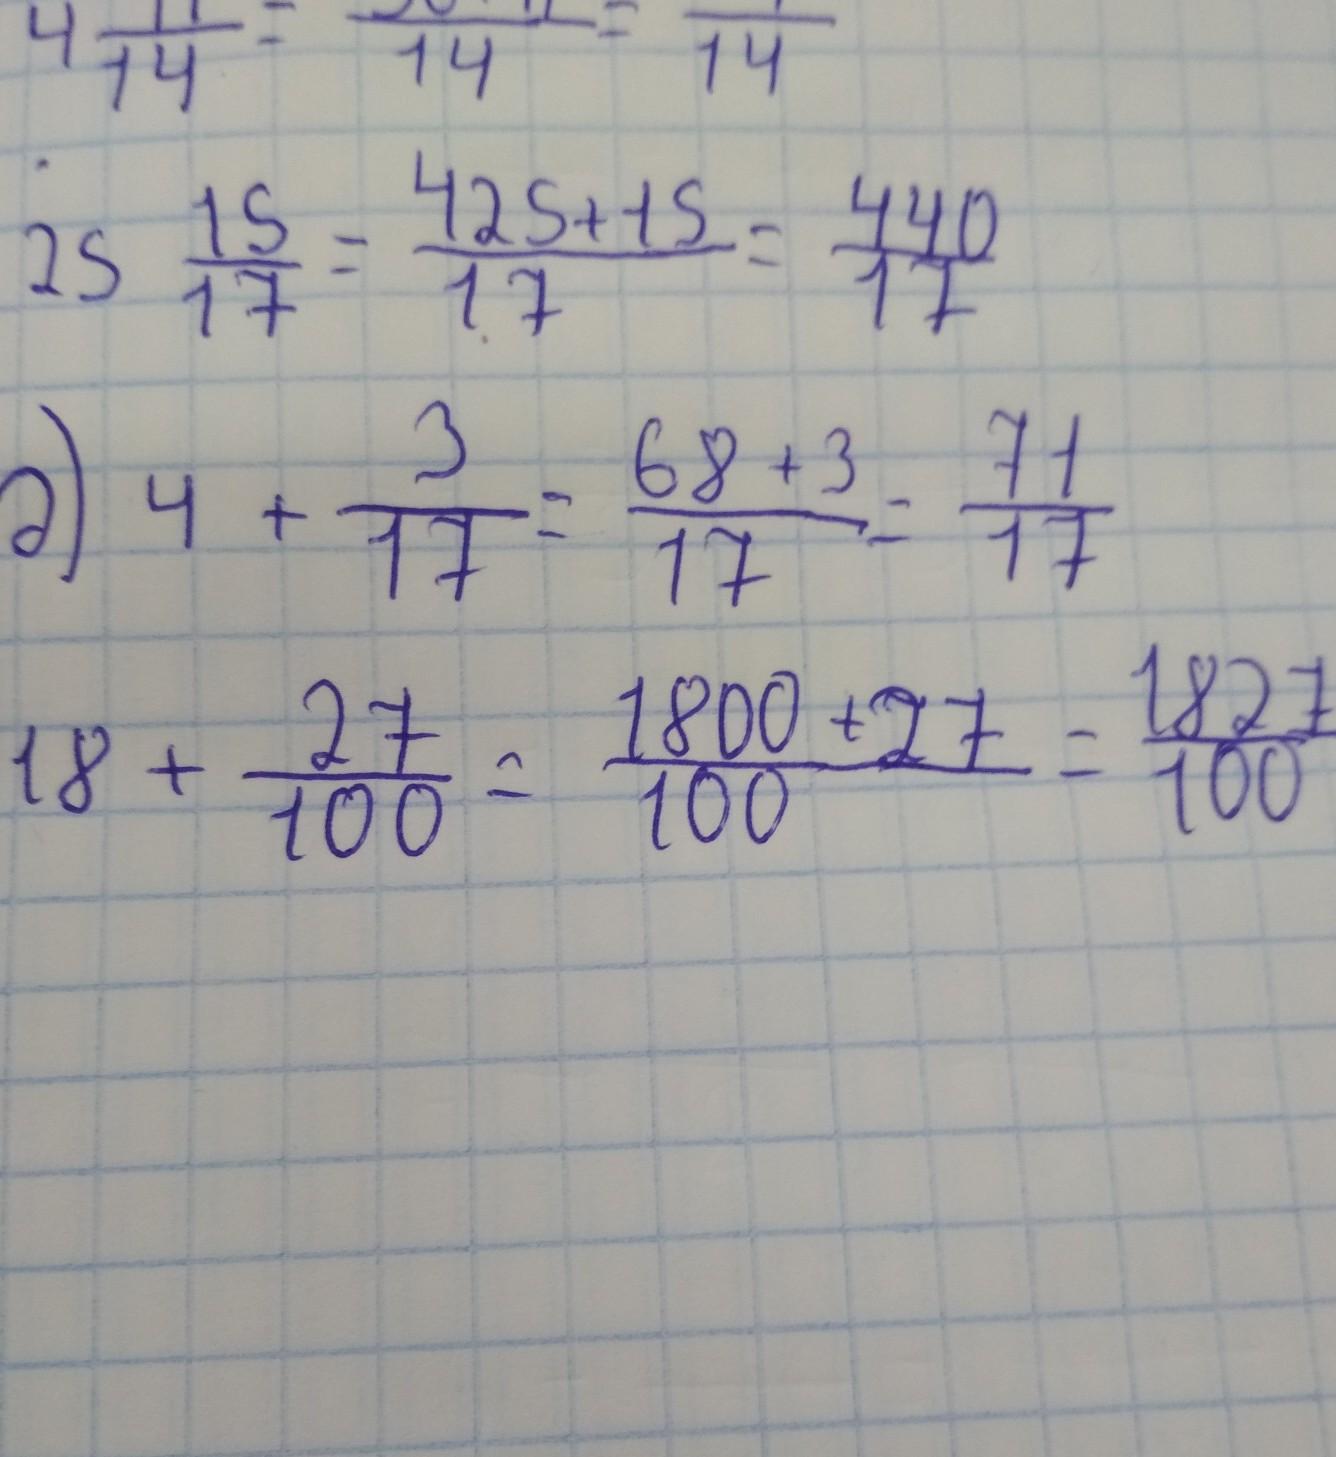 4 11/14 = /14 = /14
25 15/17 = 425+15/17 = 440/17
д) 4 + 3/17 = 68+3/17 = 71/17
18 + 27/100 = 1800+27/100 = 1827/100